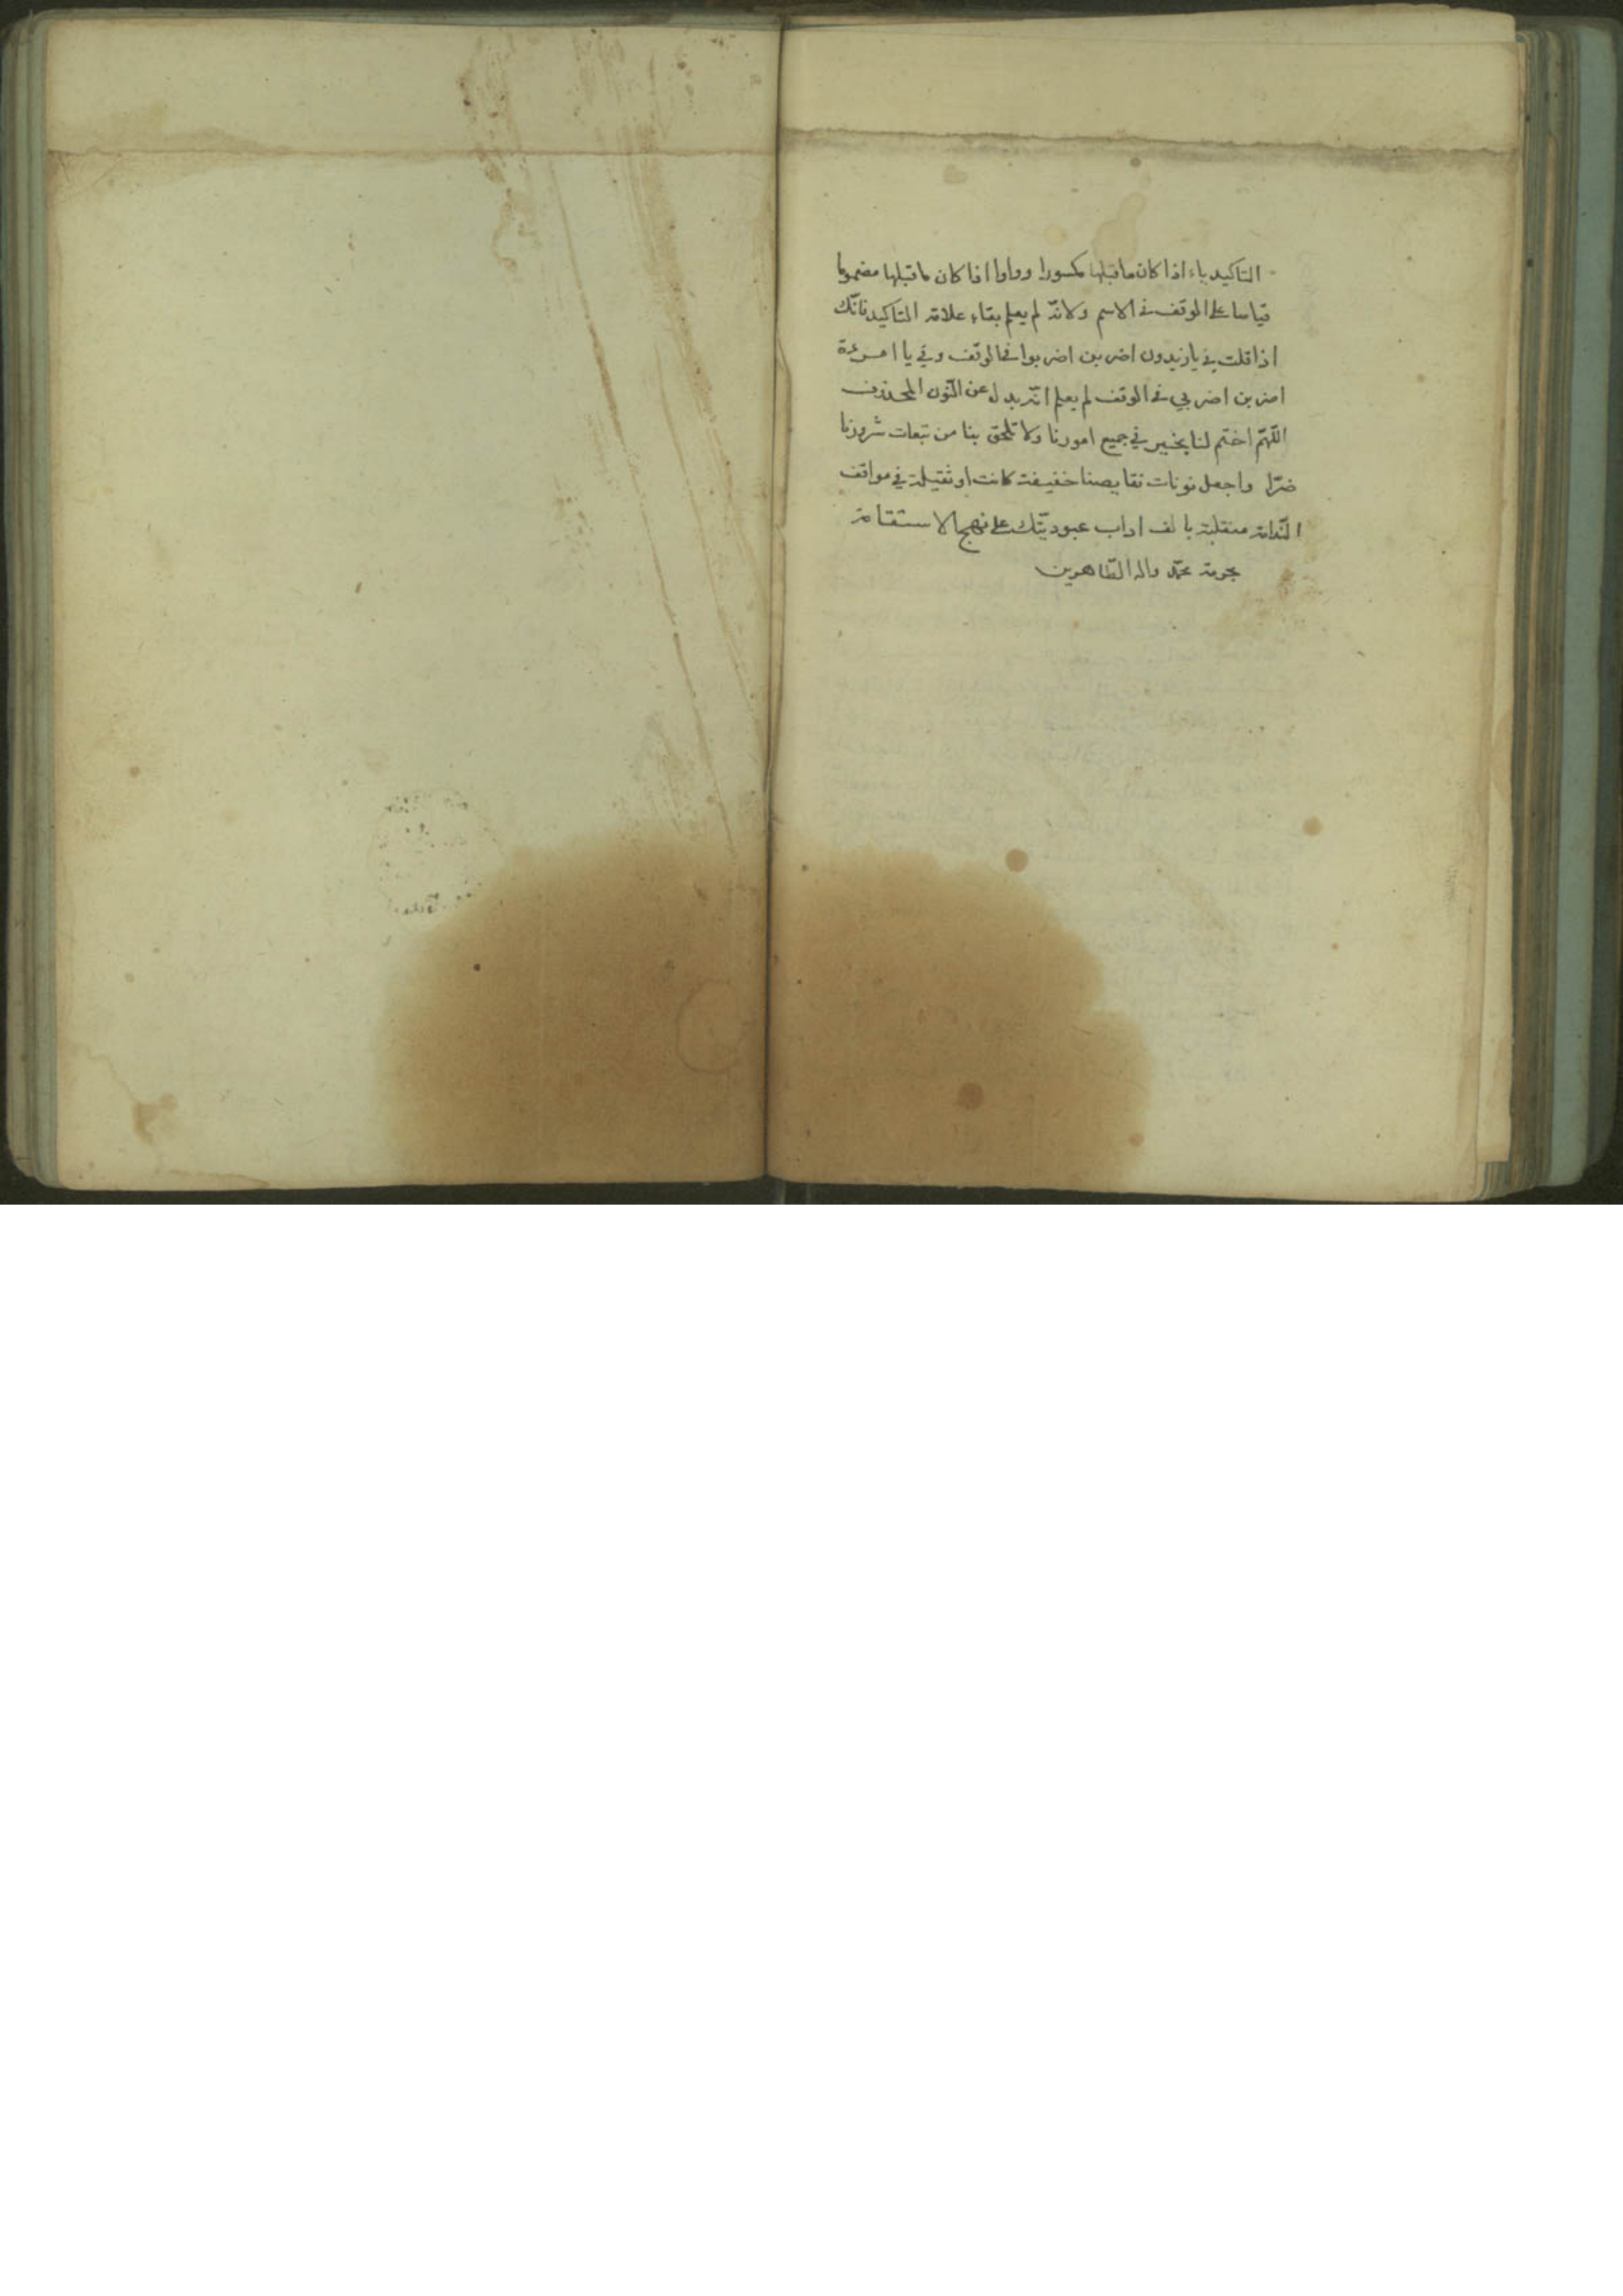 التاكيد ياء اذا كان ما قبلها مكسورا وواوا اذا كان ما قبلها مضموما
قياسا على الوقف في الاسم ولانه لم يعلم بقاء علامة التاكيد فانّك
اذا قلت في يا زيدون اضربن اضربوا في الوقف وفي يا امرءة
اضربن اضربي في الوقف لم يعلم انّه بدل عن النّون المحذوف
اللّهمّ اختم لنا بخير في جميع امورنا ولا تلحق بنا من تبعات شرورنا
ضرّا واجعل نونات نقايصنا خفيفة كانت او ثقيلة في مواقف
النّدامة منقلبة بالف اداب عبوديّتك على نهج الاستقامة
بحرمة محمّد واله الطّاهرين